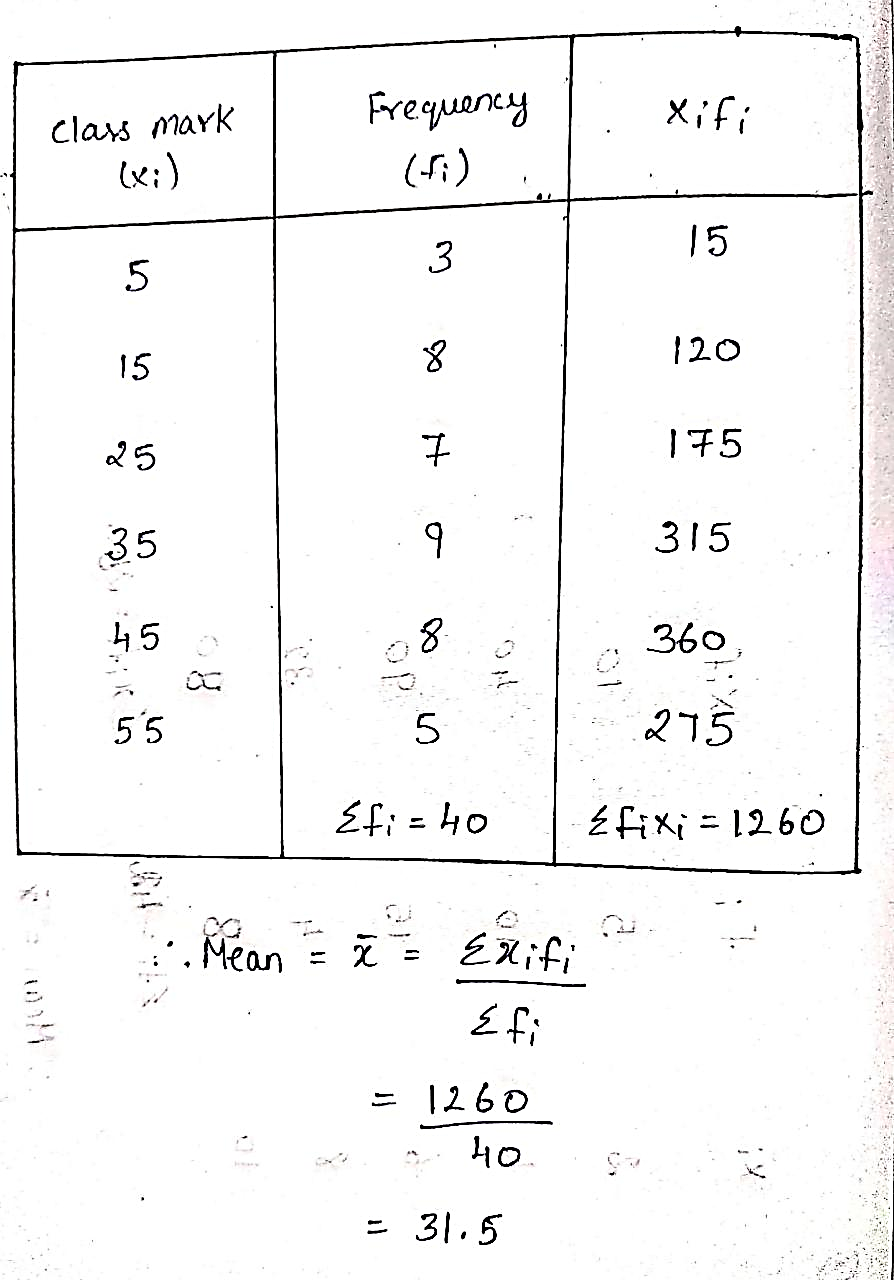 Class mark (xi) Frequency (fi) xifi
5 3 15
15 8 120
25 7 175
35 9 315
45 8 360
55 5 275
Σfi = 40 Σfixi = 1260
∴ Mean = x̄ = Σxifi
Σfi
= 1260
40
= 31.5